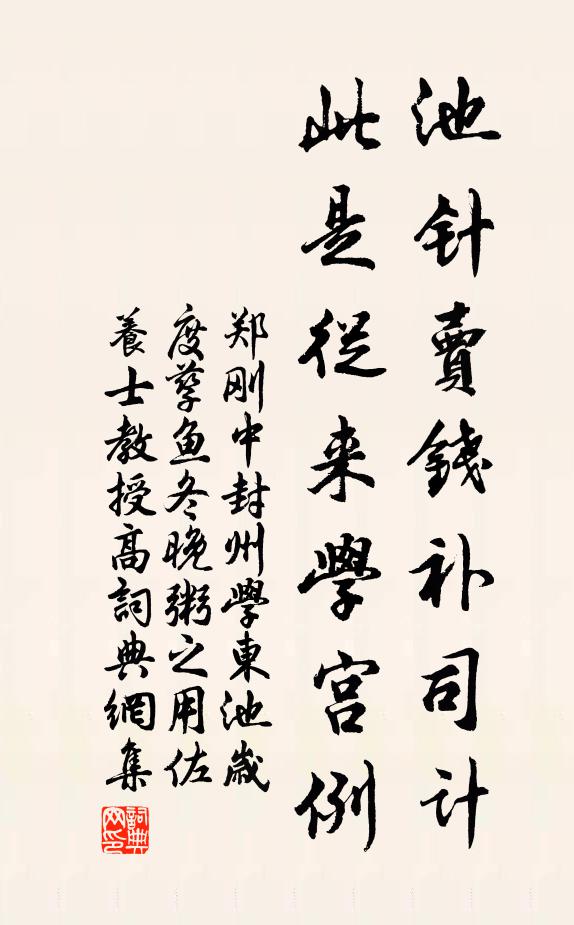 池针賣錢补司计
此是從来學宫例
郑刚中封州學東池歲
度孳鱼冬晚粥之用佐
養士教授高詞典網集
詞典网印